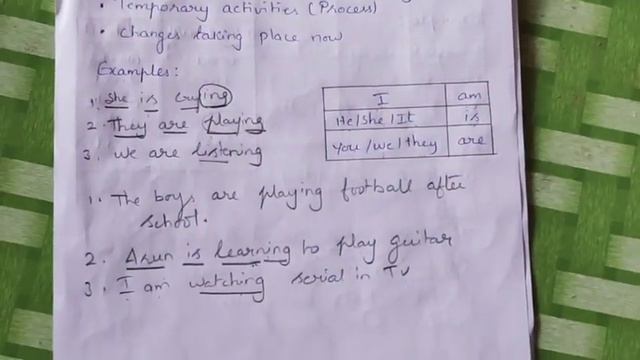 • Temporary activities (Process)
• Changes taking place now
Examples:
1. She is crying
2. They are playing
3. we are listening
I am
He/she/It is
you/we/they are
1. The boys are playing football after
school.
2. Arun is learning to play guitar
3. I am watching serial in TV